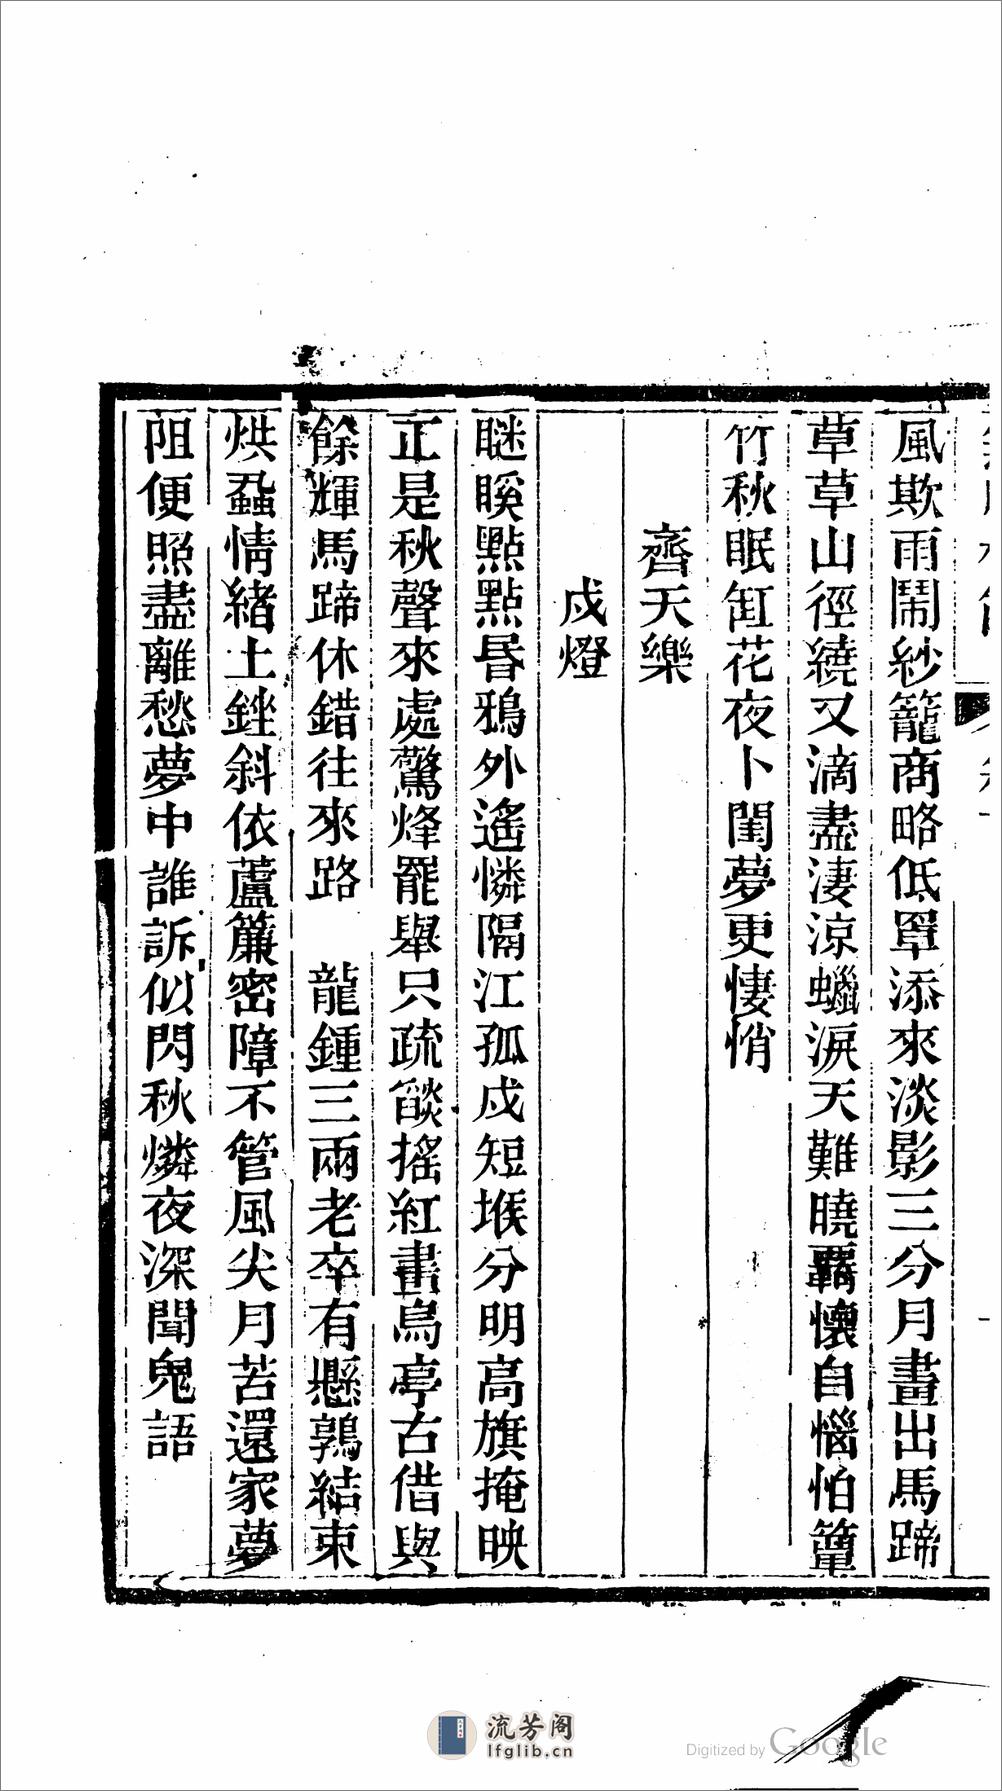 風欺雨鬧紗籠商略低罩添來淡影三分月畫出馬蹄
草草山徑繞又滴盡淒涼蠟淚天難曉羈懷自惱怕篁
竹秋眠缸花夜卜閨夢更悽悄
齊天樂
戍燈
瞇䁈點點昏鴉外遙憐隔江孤戍短堠分明高旗掩映
正是秋聲來處驚烽罷舉只疏燄搖紅畫烏亭古借與
餘輝馬蹄休錯往來路　龍鍾三兩老卒有懸鶉結束
烘蝨情緒土銼斜依蘆簾密障不管風尖月苦還家夢
阻便照盡離愁夢中誰訴似閃秋燐夜深聞鬼語
流芳阁
lfglib.cn
Digitized by Google